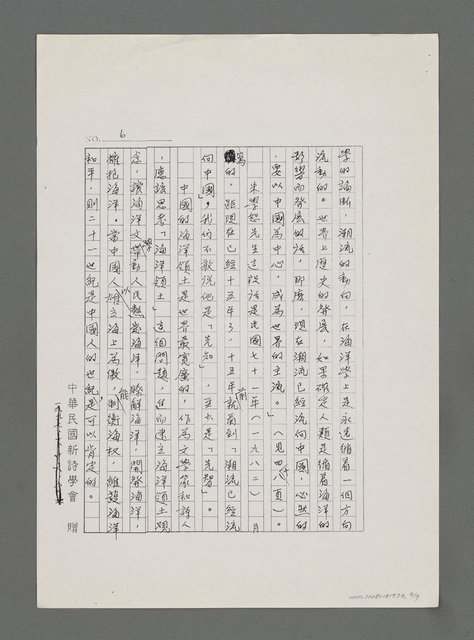 NO. 6
學的論斷，潮流的動向，在海洋學上是永遠循着一個方向
流動的。世界上歷史的發展，如果確定人類是循着海洋的
影響而發展的話，那麼，現在潮流已經流向中國，必然的
，要以中國為中心，成為世界的主流。」（見四八頁）。
朱學恕先生這段話是民國七十一年（一九八二）　月
寫的，距現在已經十五年了，十五年前就看到「潮流已經流
向中國」，我們不敢說他是「先知」，至少是「先覺」。
中國的海洋領土是世界最寬廣的，作為文學家和詩人
，應該思考「海洋領土」這個問題，進而建立海洋領土觀
念，讓海洋文學帶動人民熱愛海洋，瞭解海洋，開發海洋，
擁抱海洋。當中國人以雄立海上為傲，能制衡海權，維護海洋
和平，則二十一世紀是中國人的世紀，是可以肯定的。
中華民國新詩學會 贈